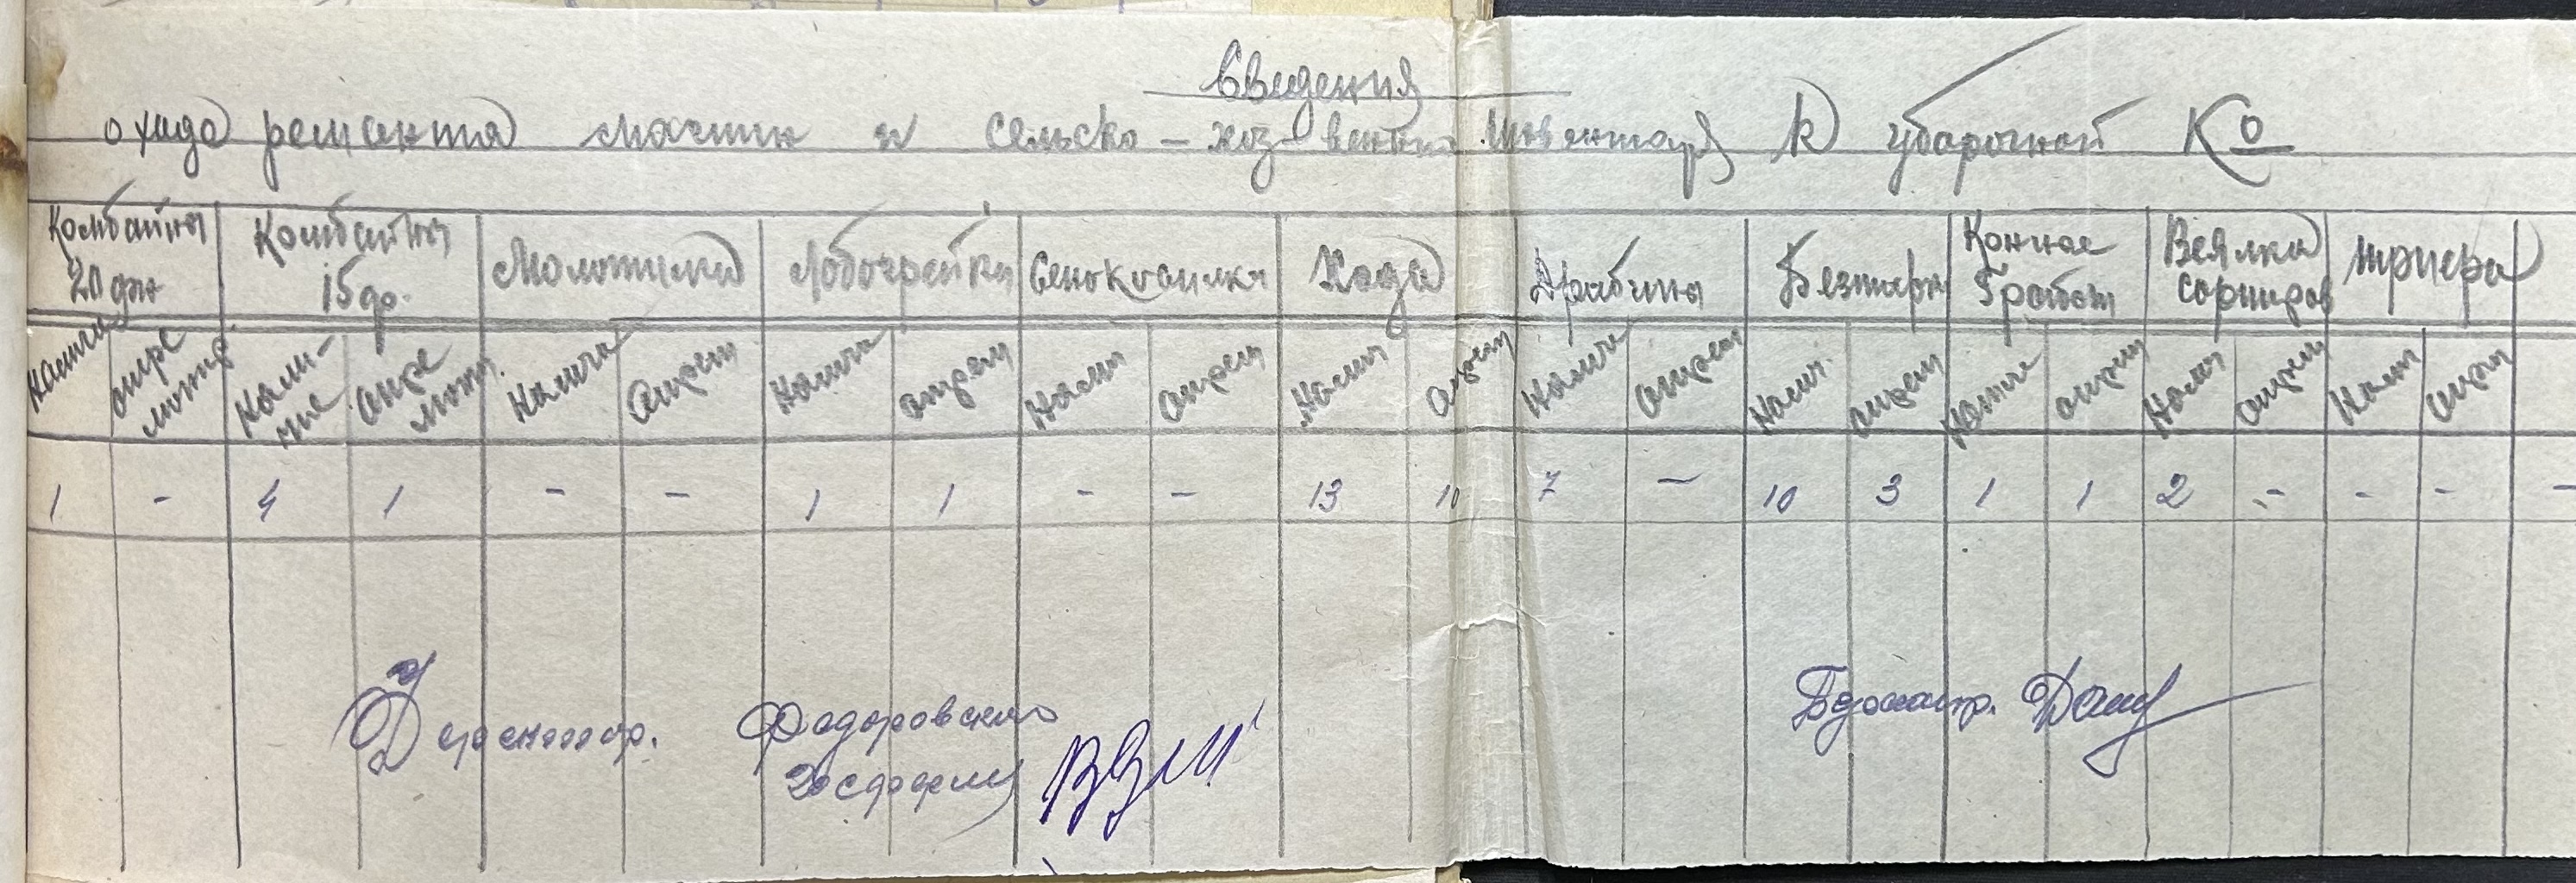 Сведения
о хода ремонта машин и сельско-хоз-венного инвентаря к уборочной Ко
Комбайны 20 Комбайны 15 Молотилки Лобогрейки Сенокосилки Хода Драбины Безтарк Конные Грабли Веялка сортиров триера
Налич отре монт Нали- чие отре монт. Налич Отрем Налич отрем Налич отрем Налич отрем Налич отрем Налич. отрем отрем Налич отрем Налич отрем
1 - 4 1 - - 1 1 - - 13 10 7 - 10 3 1 1 2 - - - -
Федоровского
Госфермы